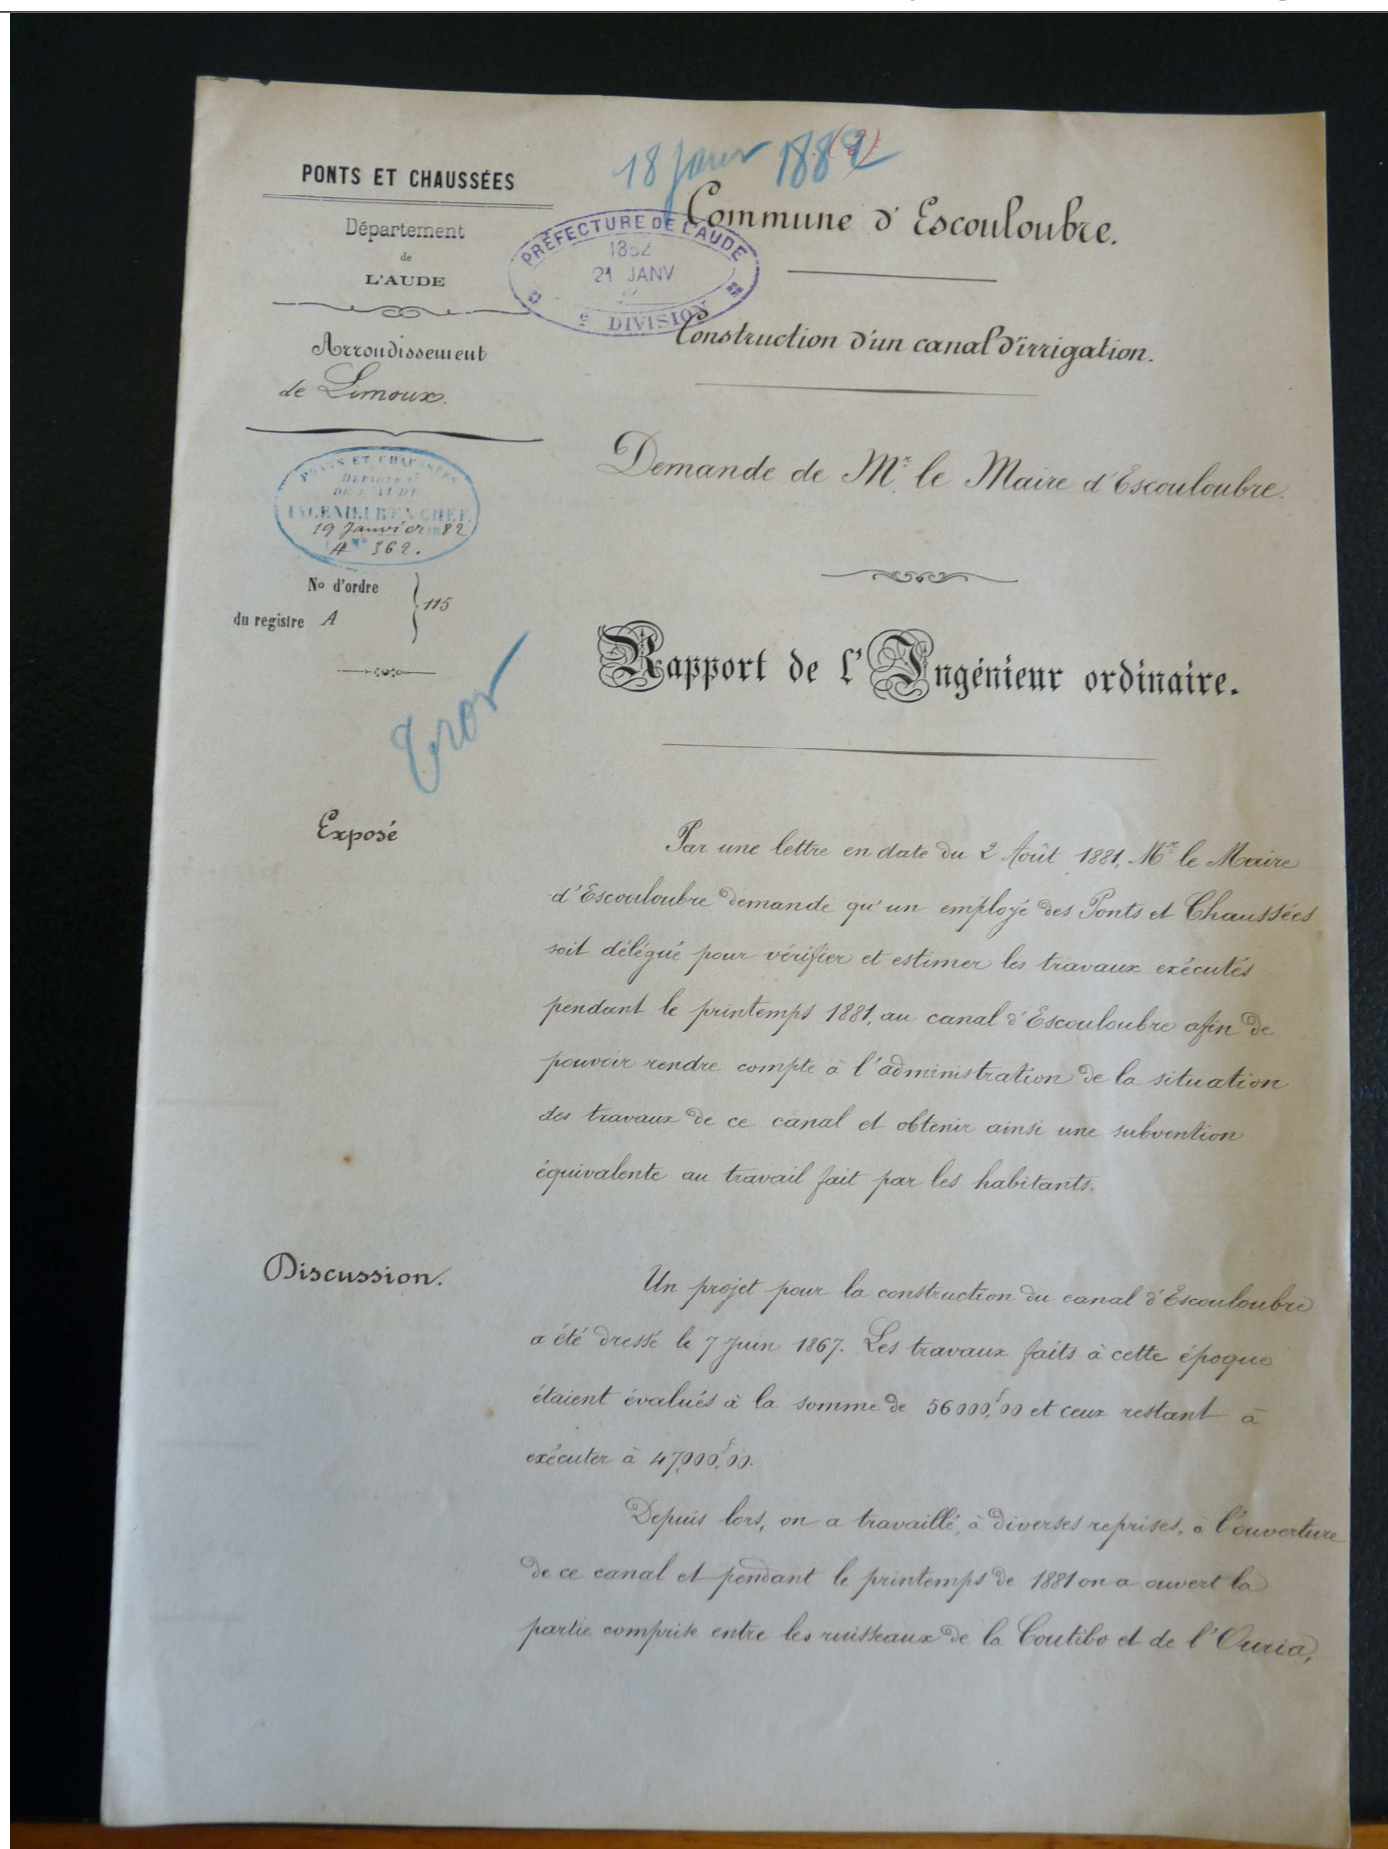 18 Janv 1882
PONTS ET CHAUSSÉES
Département
de
L'AUDE
Arrondissement
de Limoux.
PRÉFECTURE DE L'AUDE
1882
21 JANV
DIVISION
PONTS ET CHAUSSÉES
DÉPARTEMENT
DE L'AUDE
INGÉNIEUR EN CHEF
19 Janvier 1882
A N° 362.
N° d'ordre
du registre A } 115
Commune d'Escouloubre.
Construction d'un canal d'irrigation.
Demande de Mr. le Maire d'Escouloubre.
Rapport de l'Ingénieur ordinaire.
Exposé
Par une lettre en date du 2 Août 1881, Mr. le Maire
d'Escouloubre demande qu'un employé des Ponts et Chaussées
soit délégué pour vérifier et estimer les travaux exécutés
pendant le printemps 1881, au canal d'Escouloubre afin de
pouvoir rendre compte à l'administration de la situation
des travaux de ce canal et obtenir ainsi une subvention
équivalente au travail fait par les habitants.
Discussion.
Un projet pour la construction du canal d'Escouloubre
a été dressé le 7 Juin 1867. Les travaux faits à cette époque
étaient évalués à la somme de 56000,f00 et ceux restant à
exécuter à 47,000,f00.
Depuis lors, on a travaillé, à diverses reprises, à l'ouverture
de ce canal et pendant le printemps de 1881 on a ouvert la
partie comprise entre les ruisseaux de la Coutibo et de l'Ouria,